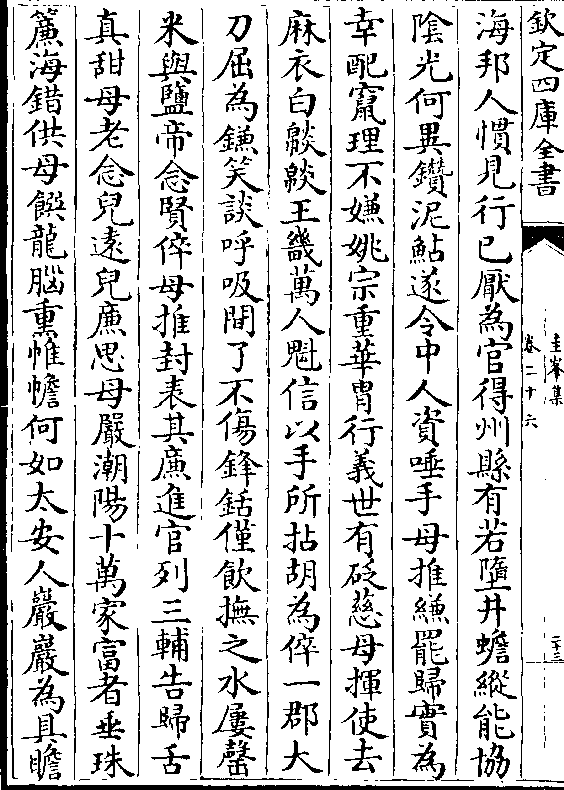 欽定四庫全書
圭峯集
卷二十六
二十三
海邦人慣見行已厭為官得州縣有若墮井蟾縱能協
陰光何異鑽泥鮎遂令中人資唾手母推縑罷歸實為
幸配竄理不嫌姚宗重華胄行義世有砭慈母揮使去
麻衣白緂緂王畿萬人魁信以手所拈胡為倅一郡大
刀屈為鎌笑談呼吸間了不傷鋒銛僅飲撫之水屢罄
米與鹽帝念賢倅母推封表其㢘進官列三輔告歸舌
真甜母老念兒遠兒㢘思母嚴潮陽十萬家富者垂珠
簾海錯供母饌龍腦熏帷幨何如太安人巖巖為具瞻